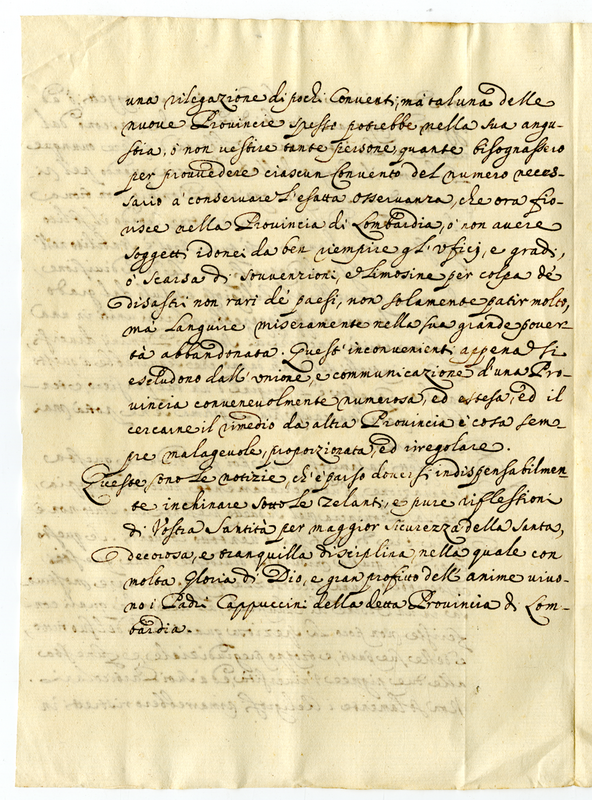 una rilegazione di pochi Conventi; mà taluna delle
nuove Provincie spesso potrebbe nella sua angu-
stia, ò non vestire tante persone quante bisognassero
per provvedere ciascun Convento del numero neces-
sario à conservare l'esatta osservanza, che ora fio-
risce nella Provincia di Lombardia, ò non avere
soggetti idonei da ben riempire gl'Uficij, e gradi,
ò scarsa di sovvenzioni, e limosine per colpa de'
disastri non rari de' paesi, non solamente patir molto,
mà languire miseramente nella sua grande pover-
tà abbandonata. Quest'inconvenienti appena si
escludono dall'unione, e communicazione d'una Pro-
vincia convenevolmente numerosa, ed estesa, ed il
cercarne il rimedio da altra Provincia è cosa sem-
pre malagevole, proporzionata, ed irregolare.
Queste sono le notizie, ch'è parso doversi indispensabilmen-
te inchinare sotto le zelanti, e pure riflessioni
di Vostra Santità per maggior sicurezza della santa,
decorosa, e tranquilla disciplina, nella quale con
molta Gloria di Dio, e gran profitto dell'anime vivo-
no i Padri Cappuccini della detta Provincia di Lom-
bardia.